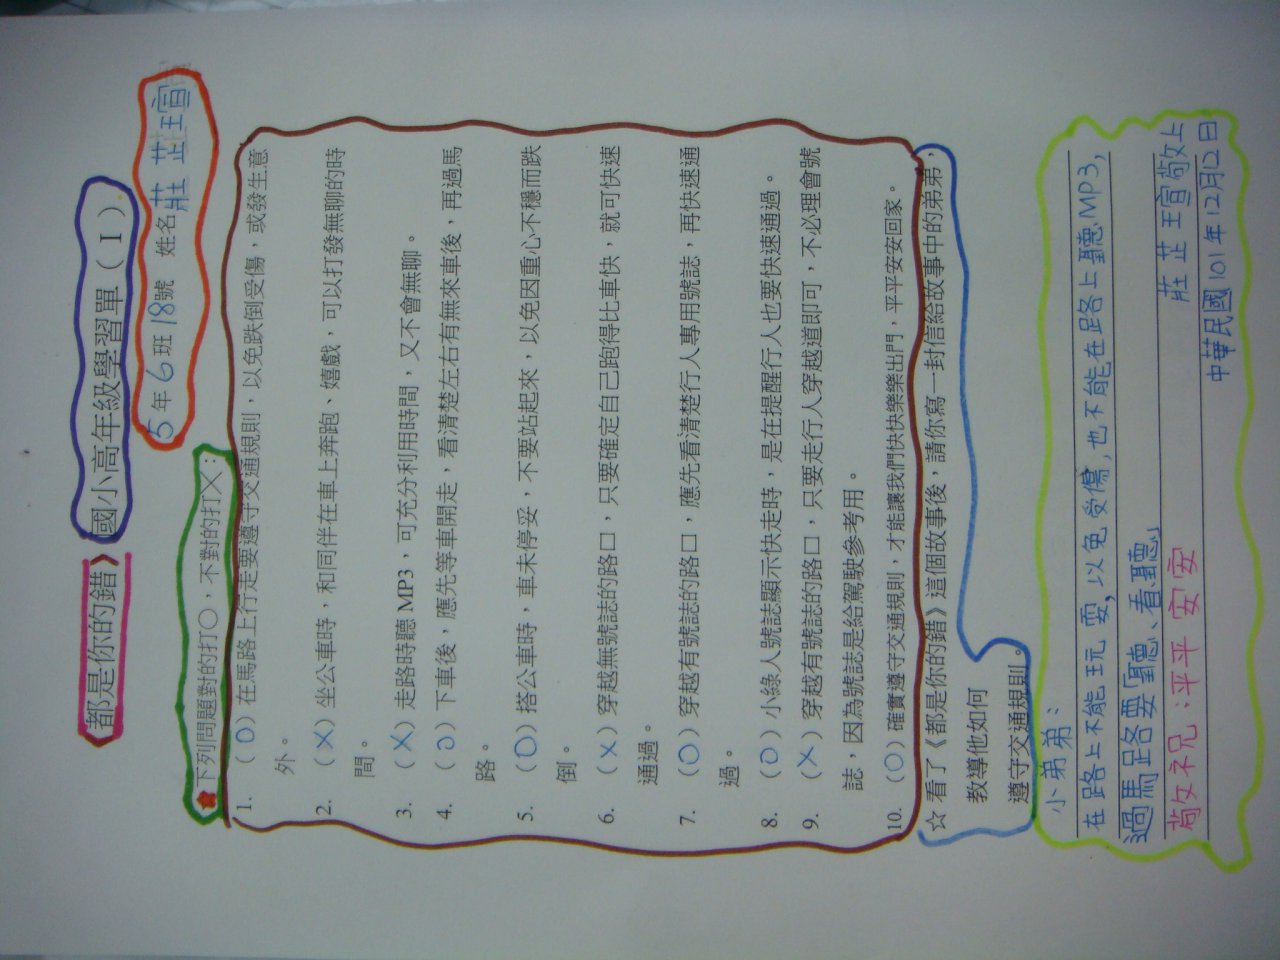 都是你的錯》國小高年級學習單（I）
5年6班18號 姓名莊芷瑄
★下列問題對的打○，不對的打╳：
1. （O）在馬路上行走要遵守交通規則，以免跌倒受傷，或發生意
外。
2. （X）坐公車時，和同伴在車上奔跑、嬉戲，可以打發無聊的時
間。
3. （X）走路時聽 MP3，可充分利用時間，又不會無聊。
4. （O）下車後，應先等車開走，看清楚左右有無來車後，再過馬
路。
5. （O）搭公車時，車未停妥，不要站起來，以免因重心不穩而跌
倒。
6. （X）穿越無號誌的路口，只要確定自己跑得比車快，就可快速
通過。
7. （O）穿越有號誌的路口，應先看清楚行人專用號誌，再快速通
過。
8. （O）小綠人號誌顯示快走時，是在提醒行人也要快速通過。
9. （X）穿越有號誌的路口，只要走行人穿越道即可，不必理會號
誌，因為號誌是給駕駛參考用。
10. （O）確實遵守交通規則，才能讓我們快快樂樂出門，平平安安回家。
☆ 看了《都是你的錯》這個故事後，請你寫一封信給故事中的弟弟，
教導他如何
遵守交通規則。
小弟弟：
在路上不能玩耍，以免受傷，也不能在路上聽MP3，
過馬路要「聽、看、聽」
敬祝：平平安安
莊芷瑄敬上
中華民國101年12月12日